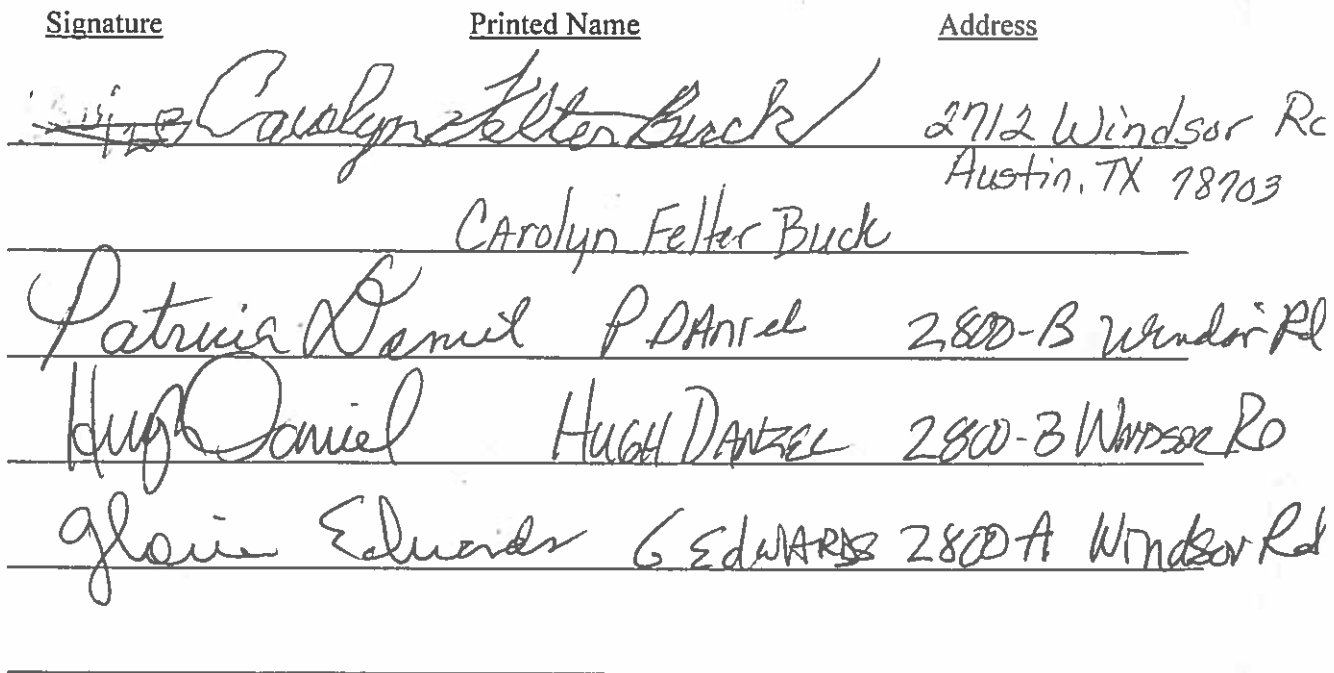 Signature Printed Name Address
Carolyn Felter Buck 2712 Windsor Rd
Austin, TX 78703
CArolyn Felter Buck
Patricia Daniel P DAniel 2800-B Windsor Rd
Hugh Daniel HUGH DANIEL 2800-B WINDSOR RD
Gloria Edwards G EdWARDS 2800 A Windsor Rd